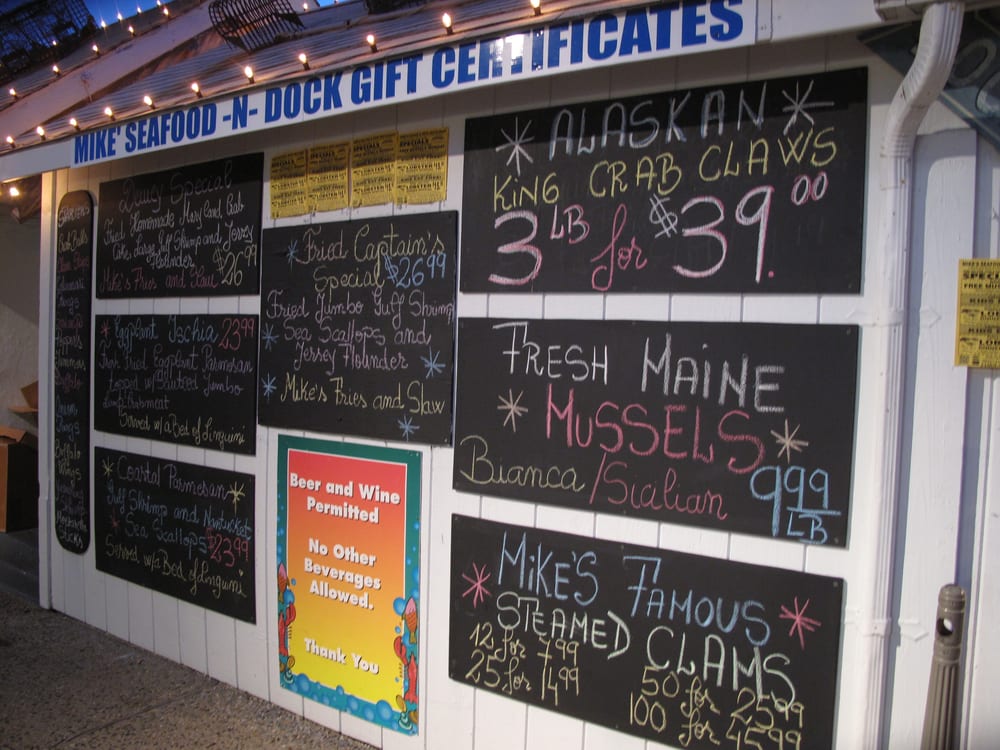 MIKE' SEAFOOD -N- DOCK GIFT CERTIFICATES
Daily Special
Fried Homemade Maryland Crab
Cake, Large Gulf Shrimp and Jersey
Flounder
Mike's Fries and Slaw $26 99
Eggplant Ischia 23 99
Fried Eggplant Parmesan
topped w/ Sauteed Jumbo
Lump Crabmeat
Served w/ a Bed of Linguini
Coastal Parmesan
Gulf Shrimp and Nantucket
Sea Scallops $23 99
Served w/ a Bed of Linguini
Fried Captain's
Special $26 99
Fried Jumbo Gulf Shrimp
Sea Scallops and
Jersey Flounder
Mike's Fries and Slaw
Beer and Wine
Permitted
No Other
Beverages
Allowed.
Thank You
ALASKAN
KING CRAB CLAWS
3 LB for $39.00
FRESH MAINE
MUSSELS
Bianca /Sicilian 9 99 LB
MIKE'S FAMOUS
STEAMED CLAMS
12 for 7.99
25 for 14 99
50 for 25 99
100 for 45 99